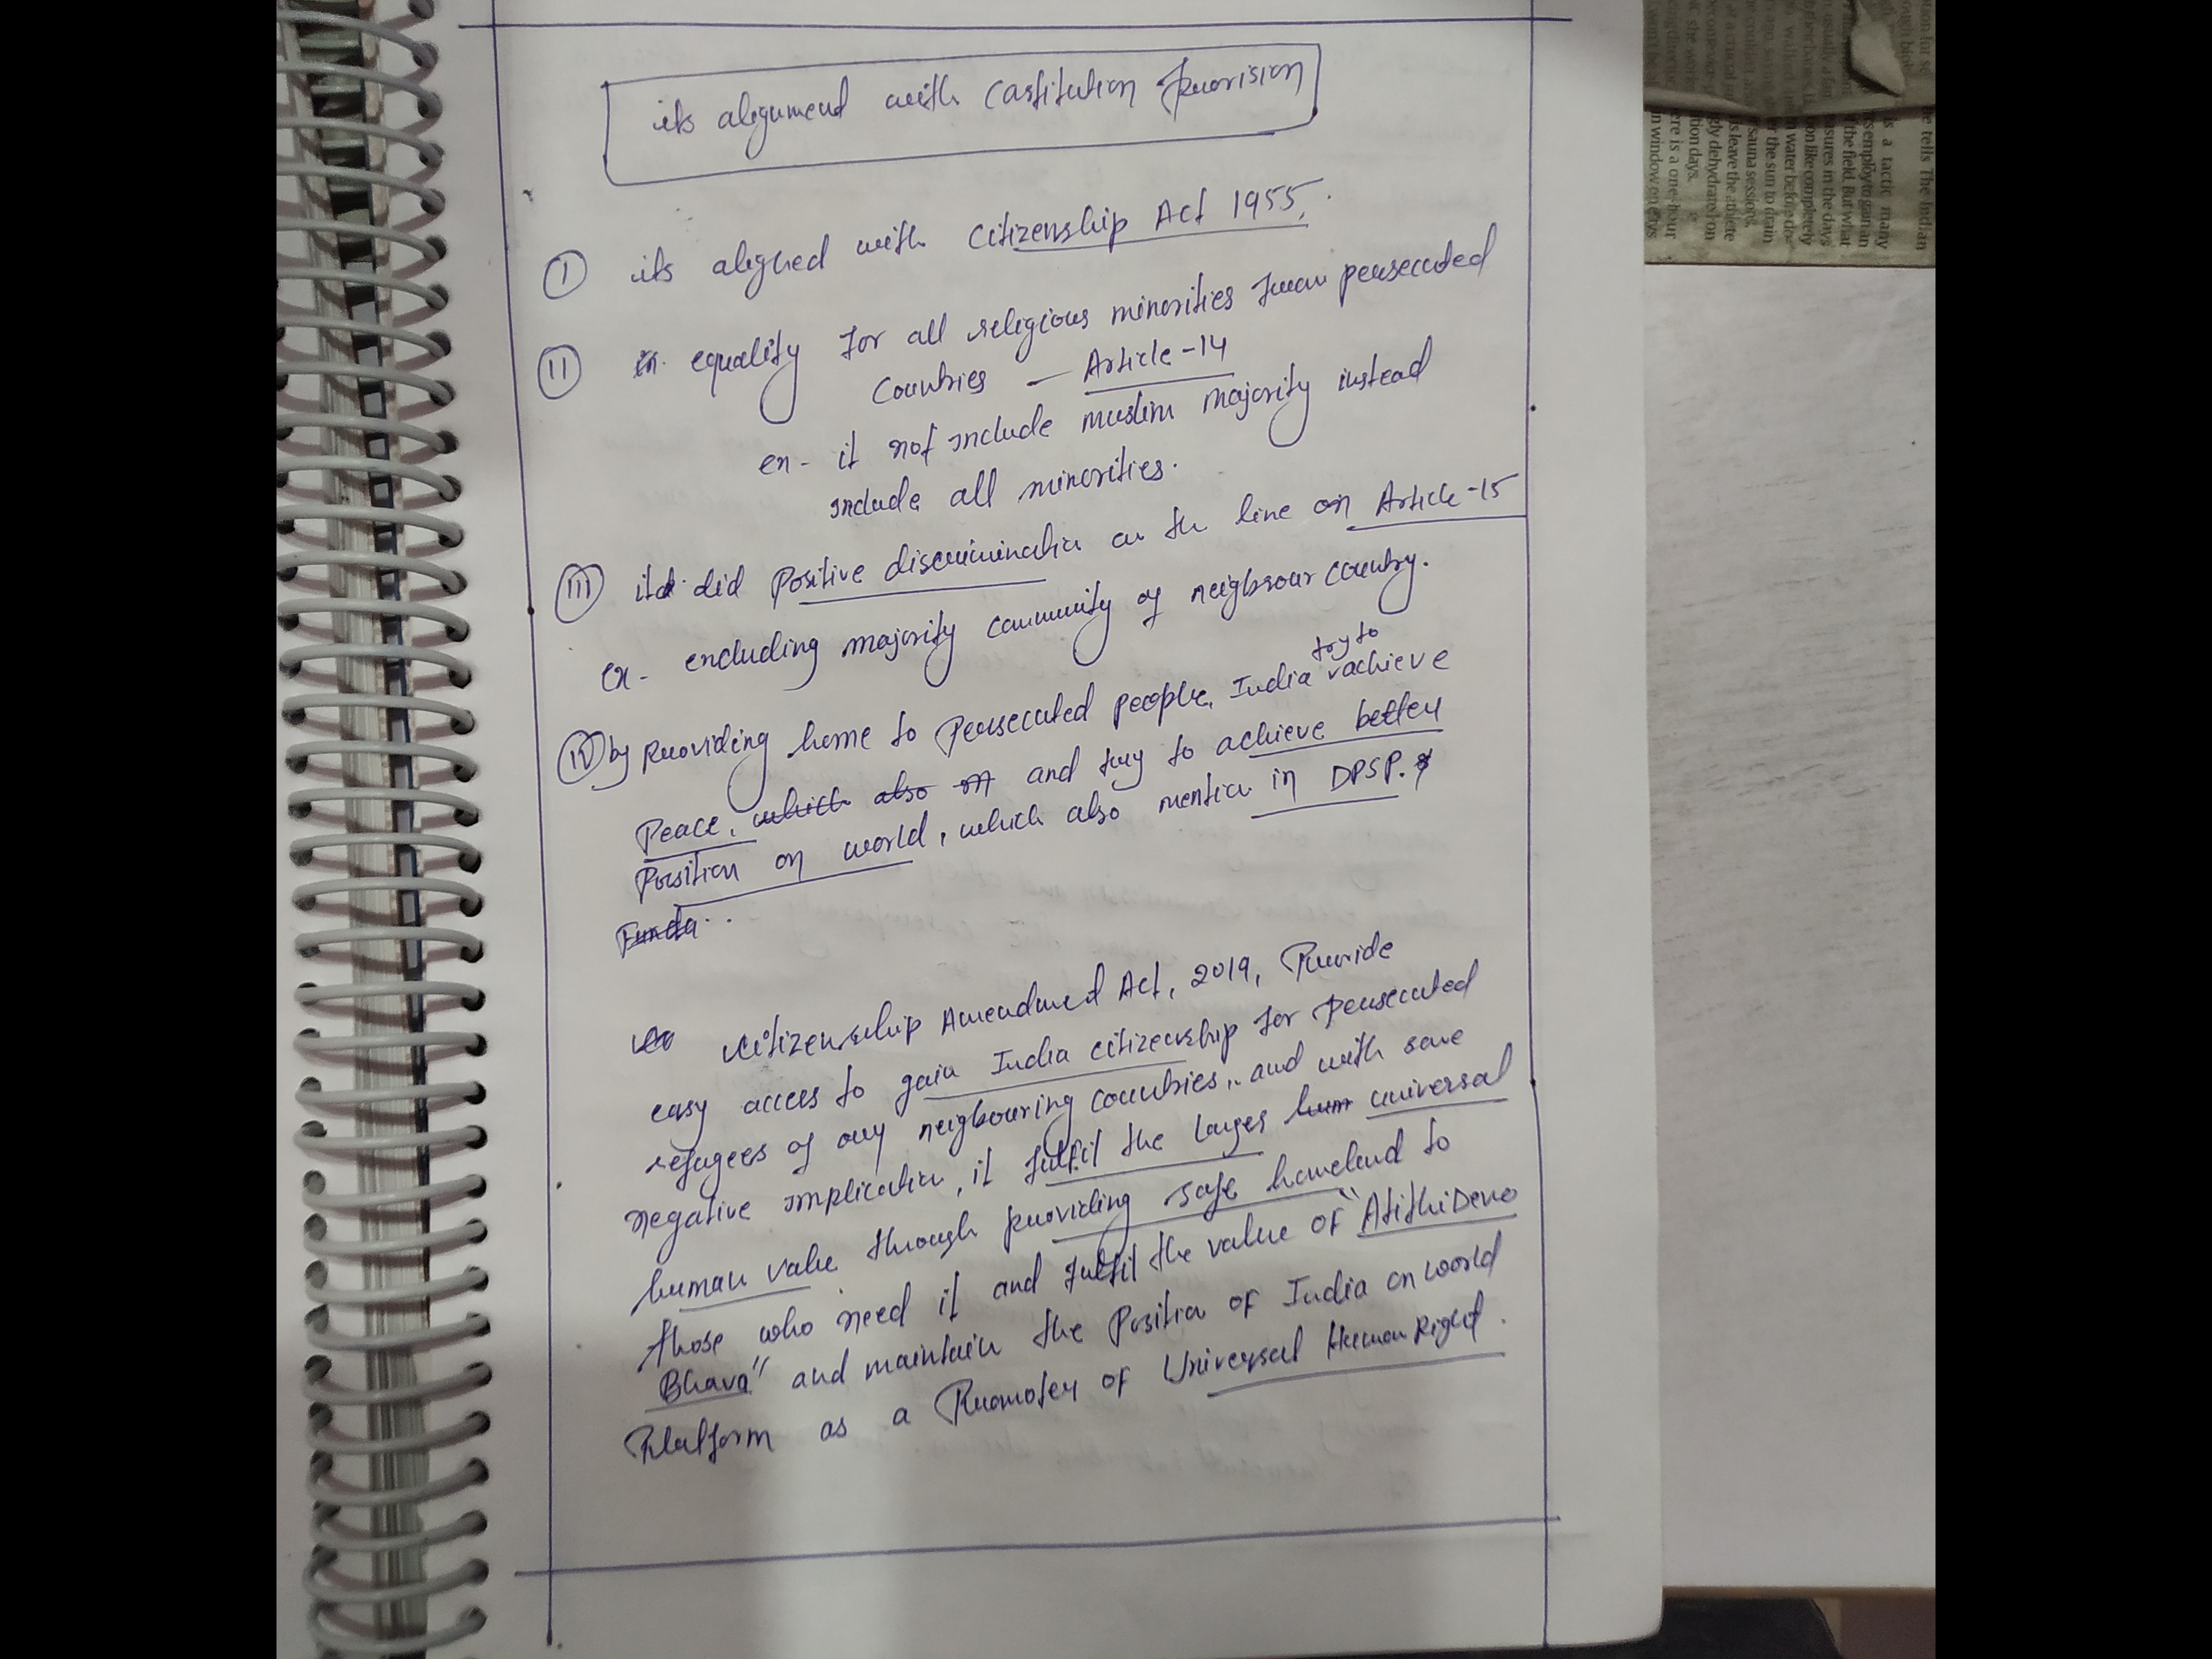 its alignment with Castitution provision
I its aligned with Citizenship Act 1955.
II equality for all religious minorities from persecuted
Countries — Article-14
ex- it not include muslim majority instead
include all minorities.
III it did Positive discrimination on the line on Article-15
ex- excluding majority community of neigbrour country.
IV by providing home to Persecuted people, India try to achieve
Peace, which also and try to achieve better
Position on world, which also mention in DPSP.
Funda..
Citizenship Amendment Act, 2019, Provide
easy access to gain India citizenship for persecuted
refugees of any neigbouring countries, and with some
negative implication, it fulfil the larger hum universal
human value through providing safe homeland to
those who need it and fulfil the value of "Atithi Devo
Bhava" and maintain the Position of India on world
Platform as a Promoter of Universal Human Right.
ne tells The Indian
is a tactic many
s employ to gain an
f the field. But what
asures in the days
on like completely
n water before do-
r the sun to drain
sauna sessions,
s leave the athlete
gly dehydrated on
tion days.
ere is a one-hour
n window on days